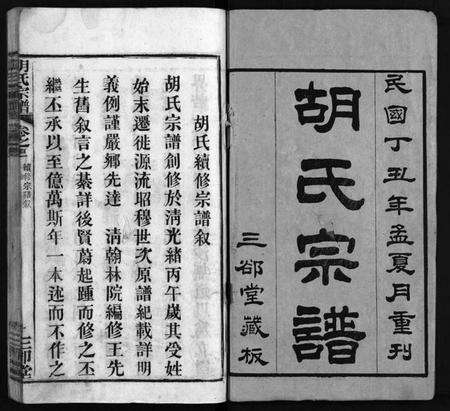 民國丁丑年孟夏月重刊
胡氏宗譜
三卻堂藏板
胡氏續修宗譜叙
胡氏宗譜創修於淸光緒丙午歲其受姓
始末遷徙源流昭穆世次原譜紀載詳明
義例謹嚴鄉先達　淸翰林院編修王先
生舊叙言之綦詳後賢蔚起踵而修之丕
繼丕承以至億萬斯年一本述而不作之
胡氏宗譜
卷之首
續修宗譜叙